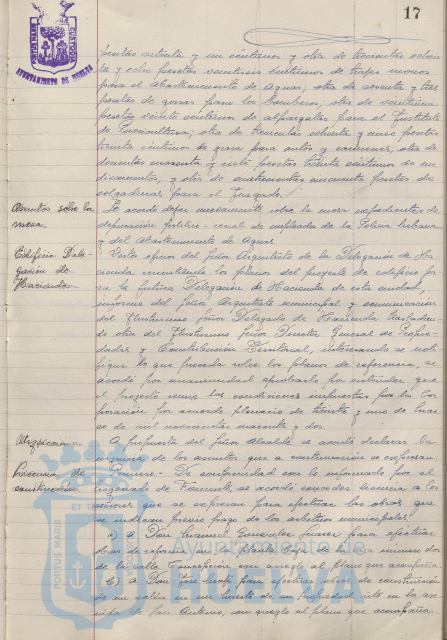 17
AYUNTAMIENTO DE HUELVA
pesetas setenta y un céntimos y otra de trescientas
ta y ocho pesetas veintiseis céntimos de trapos
para el Abastecimiento de Aguas; otra de sesenta y tres
pesetas de gorras para los bomberos; otra de
pesetas veinte céntimos de alpargatas para el Instituto
de Puericultura; otra de trescientas ochenta y cinco pesetas
treinta céntimos de grasa para autos y camiones; otra de
doscientas cuarenta y siete pesetas treinta céntimos de me
dicamentos, y otra de cuatrocientas cincuenta pesetas de
colgaduras para el Juzgado.
Asuntos sobre la
mesa.
Se acordó dejar nuevamente sobre la mesa expedientes de
depuración político-social de empleados de la Policía Urbana
y del Abastecimiento de Aguas.
Edificio Dele-
gación de
Hacienda
Visto oficio del Señor Arquitecto de la Delegación de Ha
cienda remitiendo los planos del proyecto de edificio pa
ra la futura Delegación de Hacienda de esta ciudad,
informe del Señor Arquitecto municipal y comunicación
del Ilustrísimo Señor Delegado de Hacienda trasladan
do otra del Ilustrísimo Señor Director General de Propie
dades y Contribución Territorial, interesando se noti
fique lo que proceda sobre los planos de referencia, se
acordó por unanimidad aprobarlo por entender que
el proyecto reune las condiciones impuestas por la Cor
poración por acuerdo plenario de treinta y uno de
de mil novecientos cuarenta y dos.
Urgencia
A propuesta del Señor Alcalde se acordó declarar la
urgencia de los asuntos que a continuación se expresan:
Licencias de
construcción
Primero.- De conformidad con lo informado por el
Negociado de Fomento, se acordó conceder licencia a los
señores que se expresan para efectuar las obras que
se indican previo pago de los arbitrios municipales:
a) a Don Manuel González para efectuar
obras de reforma en la planta baja de la casa número dos
de la calle Concepción con arreglo al plano que acompaña.
b) A Don José para efectuar obras de construcción
de un salón en un huerto de su propiedad sito en la ave
nida de San Antonio, con arreglo al plano que acompaña.
PORTUS MARIS ET TERRAE
Ayuntamiento de
HUELVA